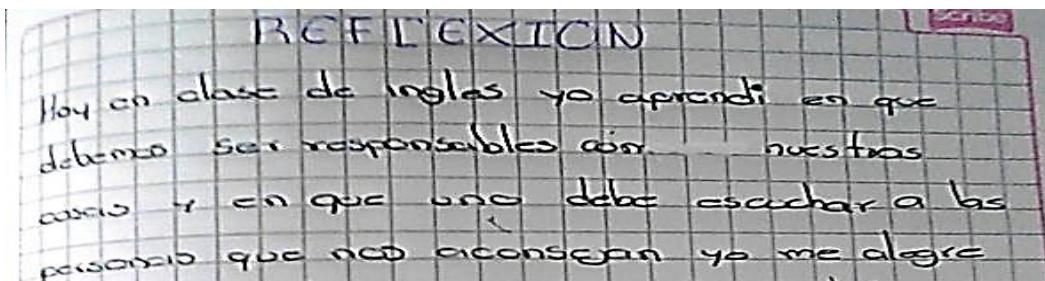 REFLEXION
Scribe
Hoy en clase de ingles yo aprendi en que
debemos ser responsables con nuestras
cosas y en que uno debe escuchar a las
personas que nos aconsejan yo me alegre